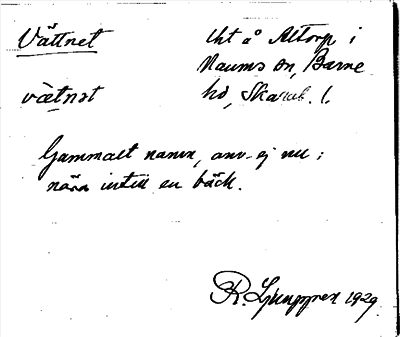 Vättnet
tkt å Altorp i
Naums sn, Barne
hd, Skarab. l.
vätnət
Gammalt namn, anv. ej nu;
nära intill en bäck.
R. Ljunggren 1929.